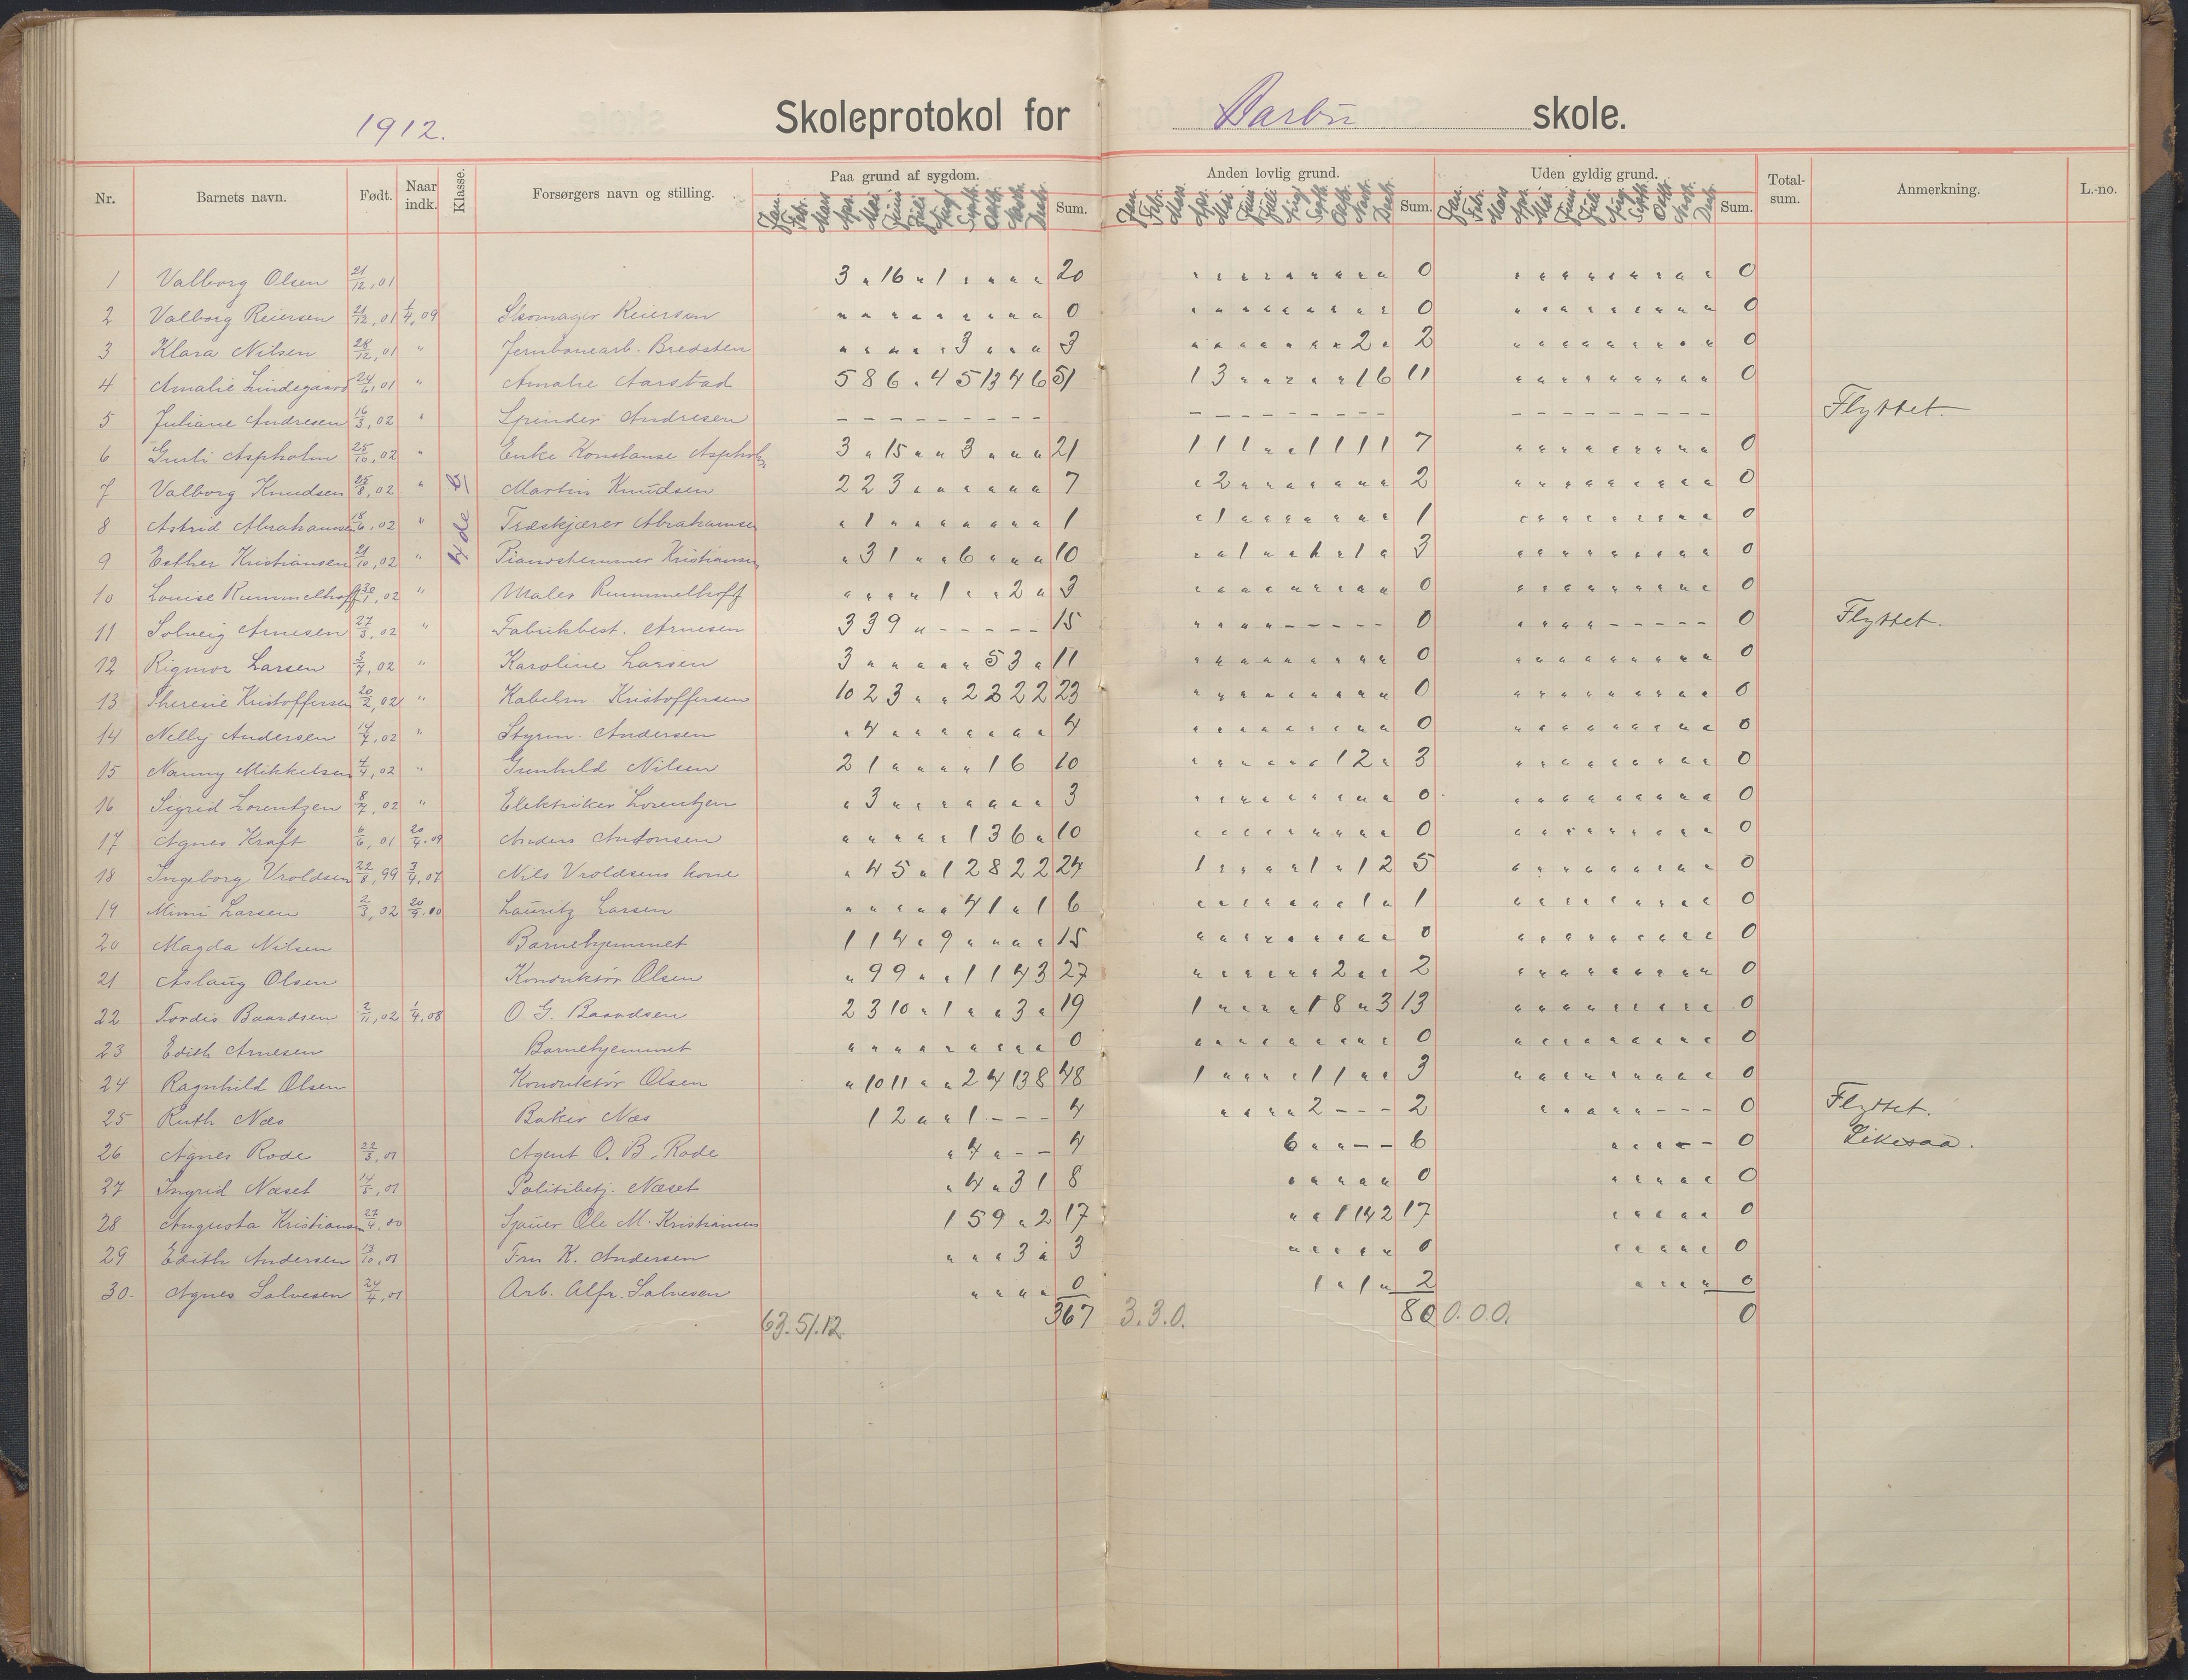 1912. Skoleprotokol for Barbu skole.
Nr. Barnets navn. Født. Naar indk. Klasse. Forsørgers navn og stilling. Paa grund af sygdom. Sum. Anden lovlig grund. Sum. Uden gyldig grund. Sum. Total-sum. Anmerkning. L.-no.
Jan. Febr. Mars Apr. Mai Juni Juli Aug. Septb. Oktb. Novbr. Decbr.
4de
1 Valborg Olsen 21/12, 01 3 " 16 " 1 " " " " 20 0 0
2 Valborg Reiersen 21/12, 01 1/4, 09 Skomager Reiersen 0 0 0
3 Klara Nilsen 28/12, 01 " Jernbanearb. Bredsten 3 3 2 2 0
4 Amalie Lindegaard 24/6, 01 " Amalie Aarstad 5 8 6 " 4 5 13 4 6 51 1 3 " " " " " 1 6 11 0
5 Juliane Andresen 16/3, 02 " Spinder Andresen - - - - - - - - - Flyttet.
6 Gurli Aspholm 25/10, 02 " Enke Konstanse Aspholm 3 " 15 " " 3 " " " 21 1 1 1 " " 1 1 1 1 7 0
7 Valborg Knudsen 25/8, 02 " Martin Knudsen 2 2 3 " " " " " " 7 " 2 " " " " " " " 2 0
8 Astrid Abrahamsen 18/6, 02 " Træskjærer Abrahamsen " 1 " " " " " " " 1 " 1 " " " " " " " 1 0
9 Esther Kristiansen 21/10, 02 " Pianostemmer Kristiansen " 3 1 " " 6 " " " 10 3 0
10 Louise Rummelhoff 30/1, 02 " Maler Rummelhoff " " " " 1 " " 2 " 3 0 0
11 Solveig Arnesen 27/3, 02 " Fabrikbest. Arnesen 3 3 9 " - - - - - 15 " " " " - - - - - 0 " " " " - - - - - 0 Flyttet.
12 Rigmor Larsen 3/7, 02 " Karoline Larsen 3 " " " " " 5 3 " 11 0 0
13 Theresie Kristoffersen 20/2, 02 " Kabelm. Kristoffersen 10 2 3 " " 2 2 2 2 23 0 0
14 Nelly Andersen 14/7, 02 " Styrm. Andersen " 4 " " " " " " " 4 0 0
15 Nanny Mikkelsen 4/4, 02 " Gunhild Nilsen 2 1 " " " " 1 6 10 " " " " " " 1 2 " 3 0
16 Sigrid Lorentzen 8/7, 02 " Elektriker Lorentzen " 3 " " " " " " " 3 0 0
17 Agnes Kraft 6/6, 01 20/4. 09 Anders Antonsen " " " " " 1 3 6 " 10 0 0
18 Ingeborg Vroldsen 22/8, 99 3/4, 07 Nils Vroldsens kone " 4 5 " 1 2 8 2 2 24 1 " " " " 1 " 1 2 5 0
19 Mimi Larsen 2/3, 02 20/9. 10 Lauritz Larsen " " " " " 4 1 " 1 6 " " " " " " " 1 " 1 0
20 Magda Nilsen Barnehjemmet 1 1 4 " 9 " " " " 15 0 0
21 Aslaug Olsen Konduktør Olsen " 9 9 " " 1 1 4 3 27 " " " " " " 2 " " 2 0
22 Tordis Baardsen 2/11, 02 1/4, 08 O. G. Baardsen 2 3 10 " 1 " " 3 " 19 1 " " " " 1 8 " 3 13 0
23 Edith Arnesen Barnehjemmet 0 0 0
24 Ragnhild Olsen Konduktør Olsen " 10 11 " " 2 4 13 8 48 1 " " " " 1 1 " " 3 0
25 Ruth Næs Baker Næs 1 2 " " 1 - - - 4 " " " " 2 - - - 2 " " " " " - - - 0 Flyttet.
26 Agnes Rode 22/3, 01 Agent O. B. Rode " 4 " - - 4 6 " " - - 6 " " " - - 0 Likesaa.
27 Ingrid Næset 14/5, 01 Politibetj. Næset " 4 " 3 1 8 0 0
28 Augusta Kristiansen 27/4. 00 Sjauer Ole M. Kristiansen 1 5 9 " 2 17 " " 1 14 2 17 0
29 Edith Andersen 13/10, 01 Fru K. Andersen " " " 3 " 3 0 0
30. Agnes Salvesen 24/4, 01 Arb. Alfr. Salvesen " " " " 0 1 " 1 " 2 0
63.51.12. 367 3.3.0. 80 0.0.0. 0